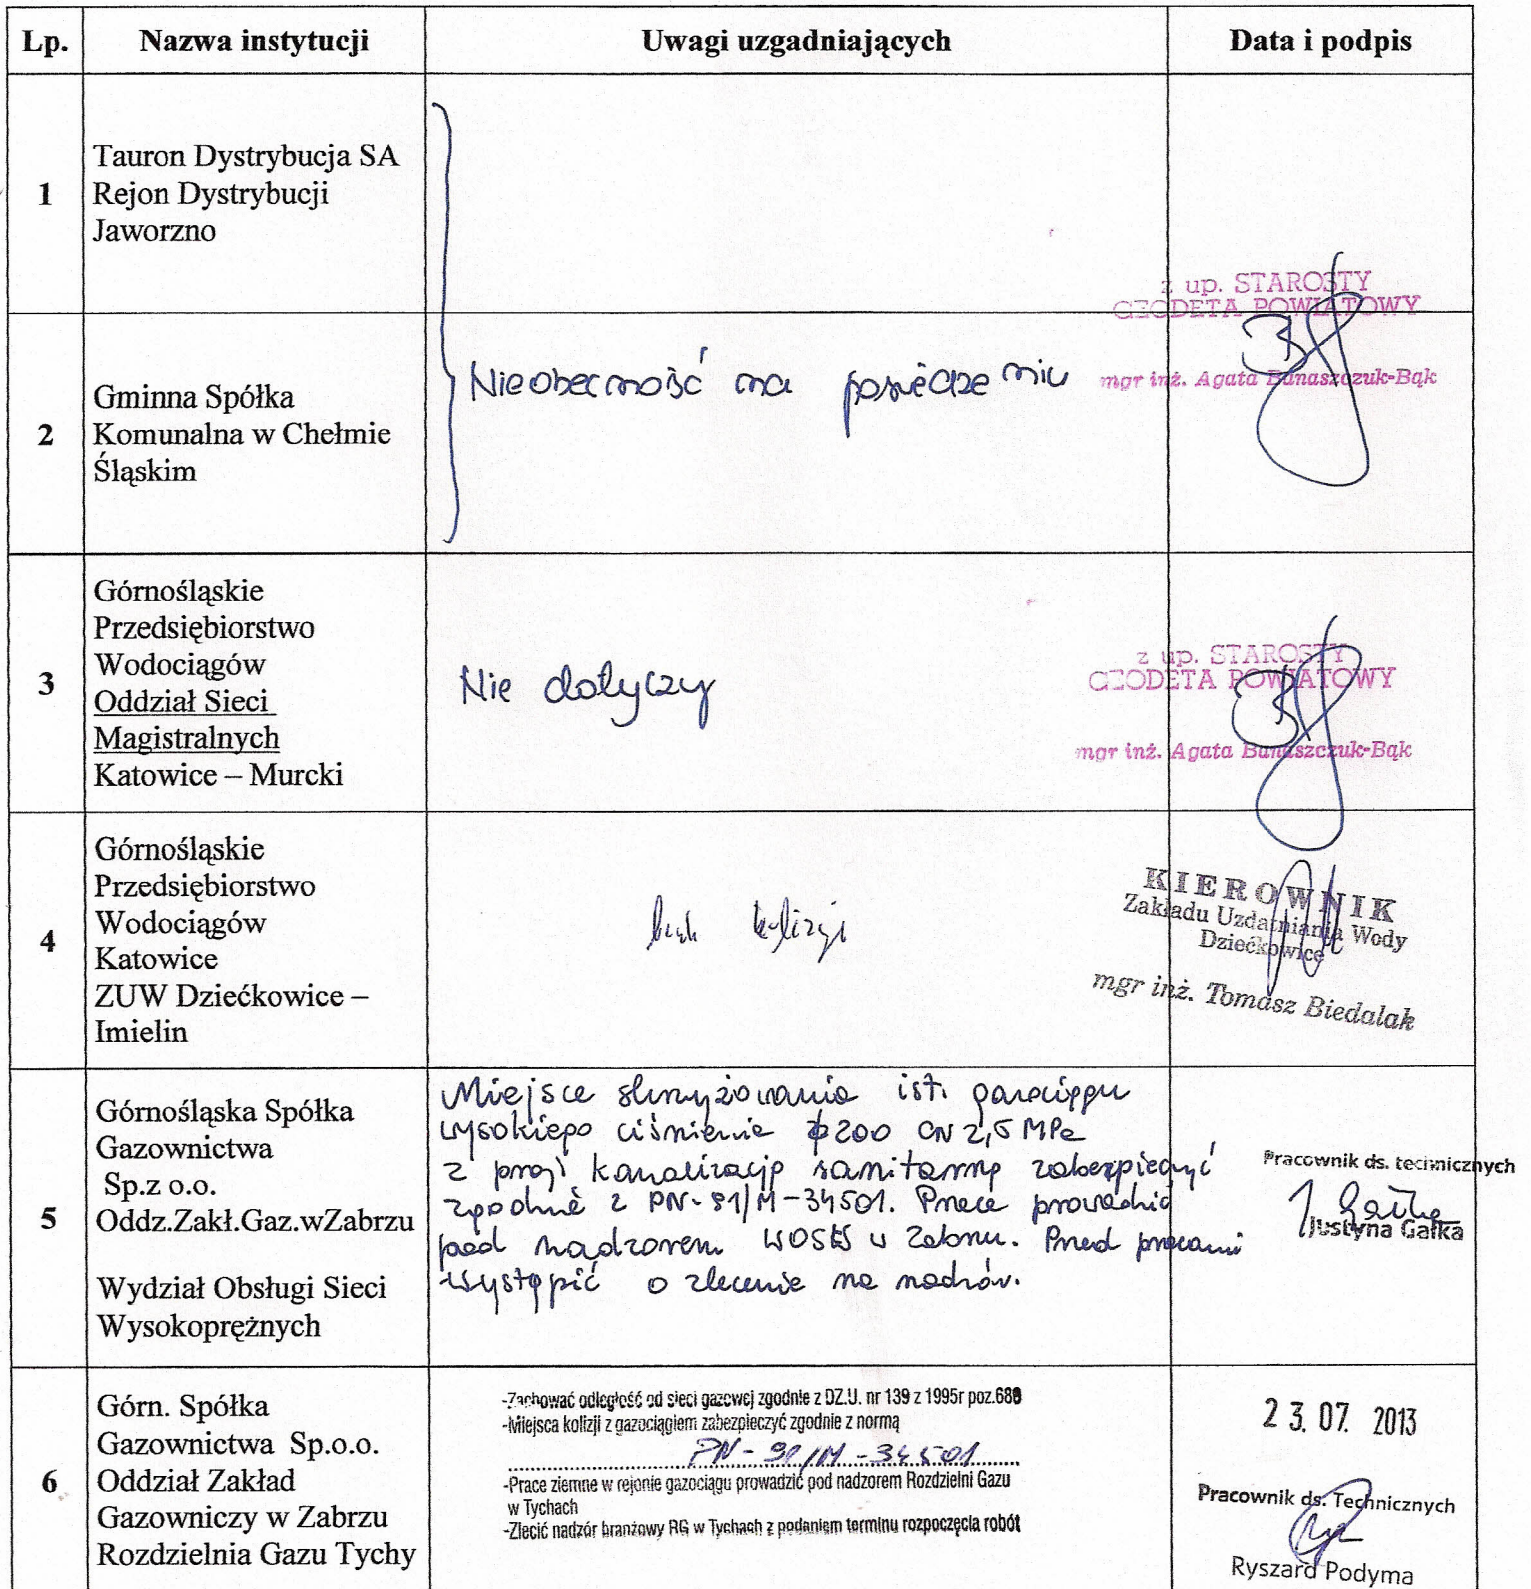 Lp. Nazwa instytucji Uwagi uzgadniających Data i podpis
1
Tauron Dystrybucja SA
Rejon Dystrybucji
Jaworzno
z up. STAROSTY
GEODETA POWIATOWY
mgr inż. Agata Banaszczuk-Bąk
2
Gminna Spółka
Komunalna w Chełmie
Śląskim
Nieobecność na posiedzeniu
3
Górnośląskie
Przedsiębiorstwo
Wodociągów
Oddział Sieci
Magistralnych
Katowice – Murcki
Nie dotyczy
z up. STAROSTY
GEODETA POWIATOWY
mgr inż. Agata Banaszczuk-Bąk
4
Górnośląskie
Przedsiębiorstwo
Wodociągów
Katowice
ZUW Dziećkowice –
Imielin
brak kolizji
KIEROWNIK
Zakładu Uzdatniania Wody
Dziećkowice
mgr inż. Tomasz Biedalak
5
Górnośląska Spółka
Gazownictwa
Sp.z o.o.
Oddz.Zakł.Gaz.wZabrzu
Wydział Obsługi Sieci
Wysokoprężnych
Miejsce skrzyżowania ist. gazociągu
wysokiego ciśnienia φ200 CN 2,5 MPa
z proj. kanalizacją sanitarną zabezpieczyć
zgodnie z PN-91/M-34501. Prace prowadzić
pod nadzorem WOSW w Zabrzu. Przed pracami
wystąpić o zlecenie na nadzór.
Pracownik ds. technicznych
Justyna Gałka
6
Górn. Spółka
Gazownictwa Sp.o.o.
Oddział Zakład
Gazowniczy w Zabrzu
Rozdzielnia Gazu Tychy
-Zachować odległość od sieci gazowej zgodnie z DZ.U. nr 139 z 1995r poz.686
-Miejsca kolizji z gazociągiem zabezpieczyć zgodnie z normą
PN-91/M-34501
-Prace ziemne w rejonie gazociągu prowadzić pod nadzorem Rozdzielni Gazu
w Tychach
-Zlecić nadzór branżowy RG w Tychach z podaniem terminu rozpoczęcia robót
23.07. 2013
Pracownik ds. Technicznych
Ryszard Podyma